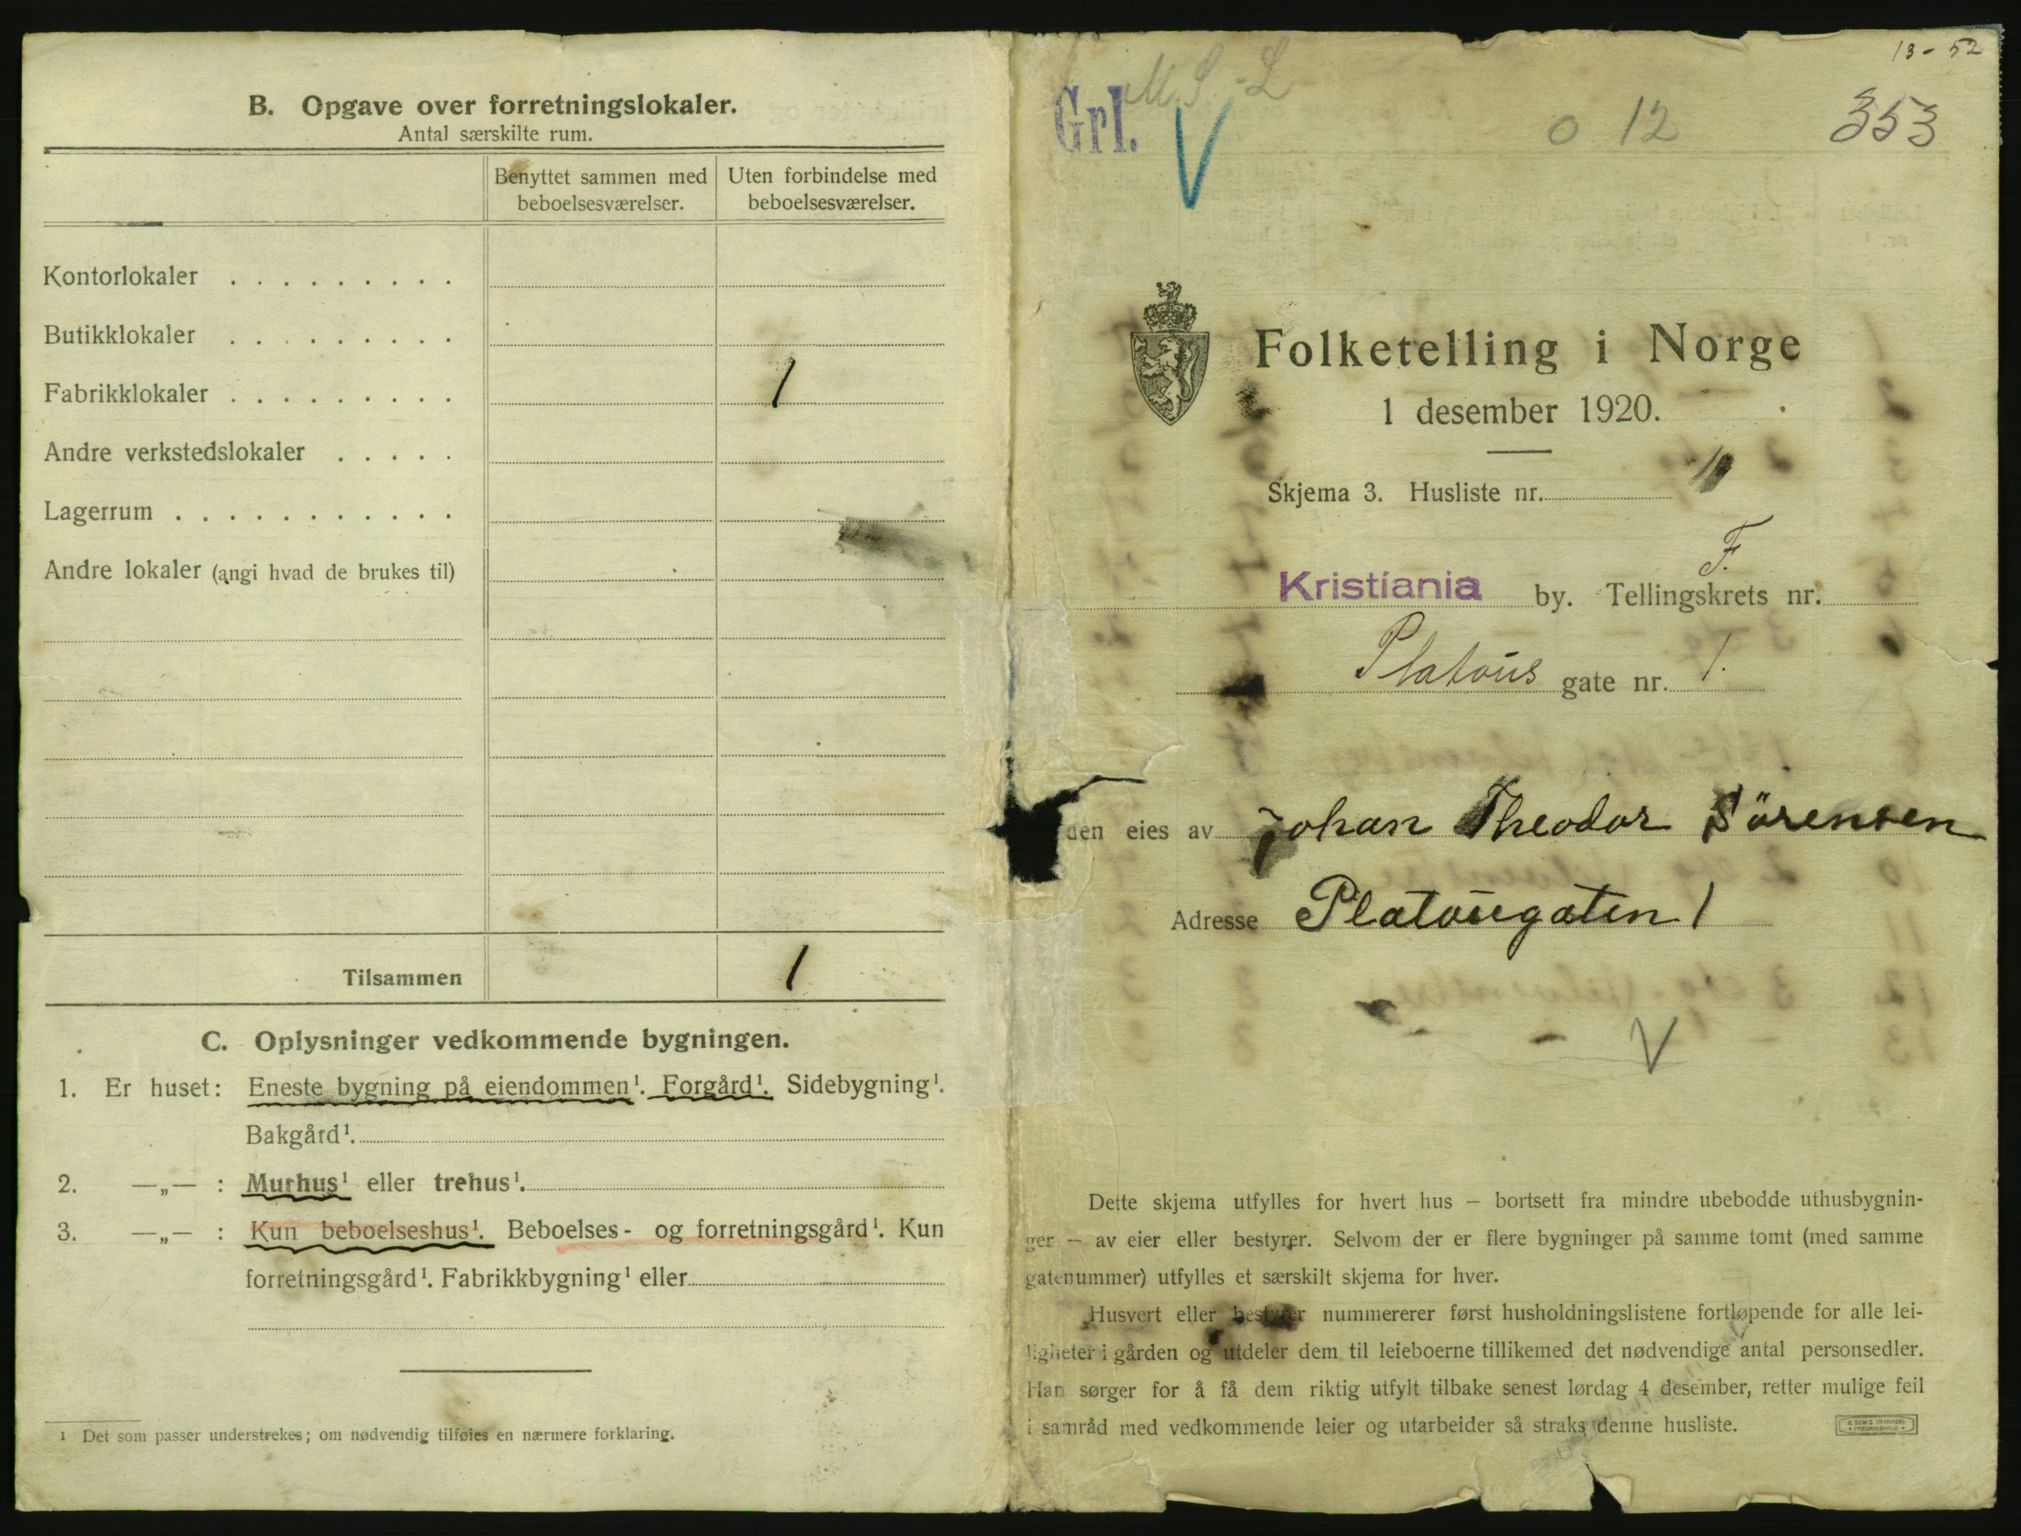 B. Opgave over forretningslokaler.
Antal særskilte rum.
Benyttet sammen med beboelsesværelser.
Uten forbindelse med beboelsesværelser.
Kontorlokaler . . . . . . . . .
Butikklokaler . . . . . . . . .
Fabrikklokaler . . . . . . . . . 1
Andre verkstedslokaler . . . . .
Lagerrum . . . . . . . . . . .
Andre lokaler (angi hvad de brukes til)
Tilsammen 1
C. Oplysninger vedkommende bygningen.
1. Er huset: Eneste bygning på eiendommen¹. Forgård¹. Sidebygning¹.
Bakgård¹.
2. —„— : Murhus¹ eller trehus¹.
3. —„— : Kun beboelseshus¹. Beboelses- og forretningsgård¹. Kun
forretningsgård¹. Fabrikkbygning¹ eller
¹ Det som passer understrekes; om nødvendig tilføies en nærmere forklaring.
13 - 52
M S - L
Grl. V o 12 353
Folketelling i Norge
1 desember 1920.
Skjema 3. Husliste nr.
Kristiania by. Tellingskrets nr. F.
Platous gate nr. 1.
den eies av Johan Theodor Sörensen
Adresse Platougaten 1
V
Dette skjema utfylles for hvert hus – bortsett fra mindre ubebodde uthusbygnin-
ger – av eier eller bestyrer. Selvom der er flere bygninger på samme tomt (med samme
gatenummer) utfylles et særskilt skjema for hver.
Husvert eller bestyrer nummererer først husholdningslistene fortløpende for alle lei-
ligheter i gården og utdeler dem til leieboerne tillikemed det nødvendige antal personsedler.
Han sørger for å få dem riktig utfylt tilbake senest lørdag 4 desember, retter mulige feil
i samråd med vedkommende leier og utarbeider så straks denne husliste.